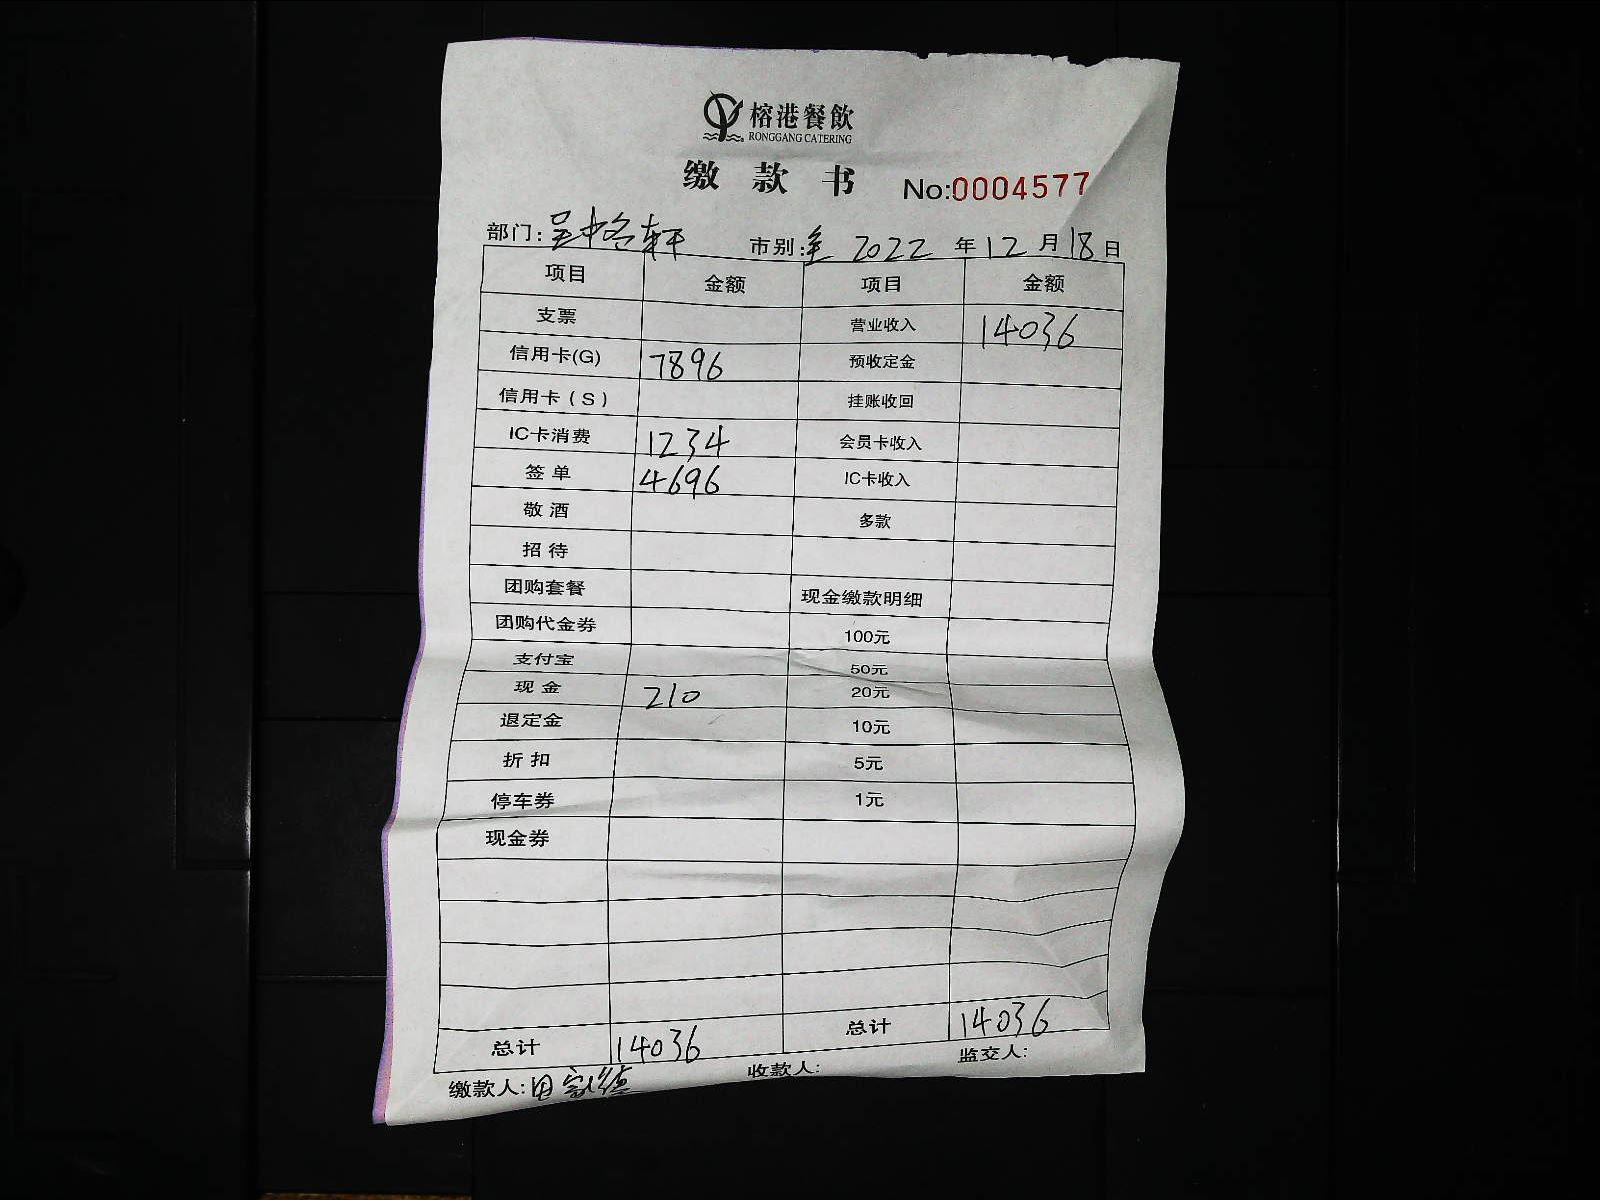 榕港餐飲
RONGGANG CATERING
缴款书 No:0004577
部门: 市别:全 2022 年 12 月 18 日
项目 金额 项目 金额
支票 营业收入 14036
信用卡(G) 7896 预收定金
信用卡(S) 挂账收回
IC卡消费 1234 会员卡收入
签单 4696 IC卡收入
敬酒 多款
招待
团购套餐 现金缴款明细
团购代金券 100元
支付宝 50元
现金 210 20元
退定金 10元
折扣 5元
停车券 1元
现金券
总计 14036 总计 14036
缴款人: 收款人: 监交人: